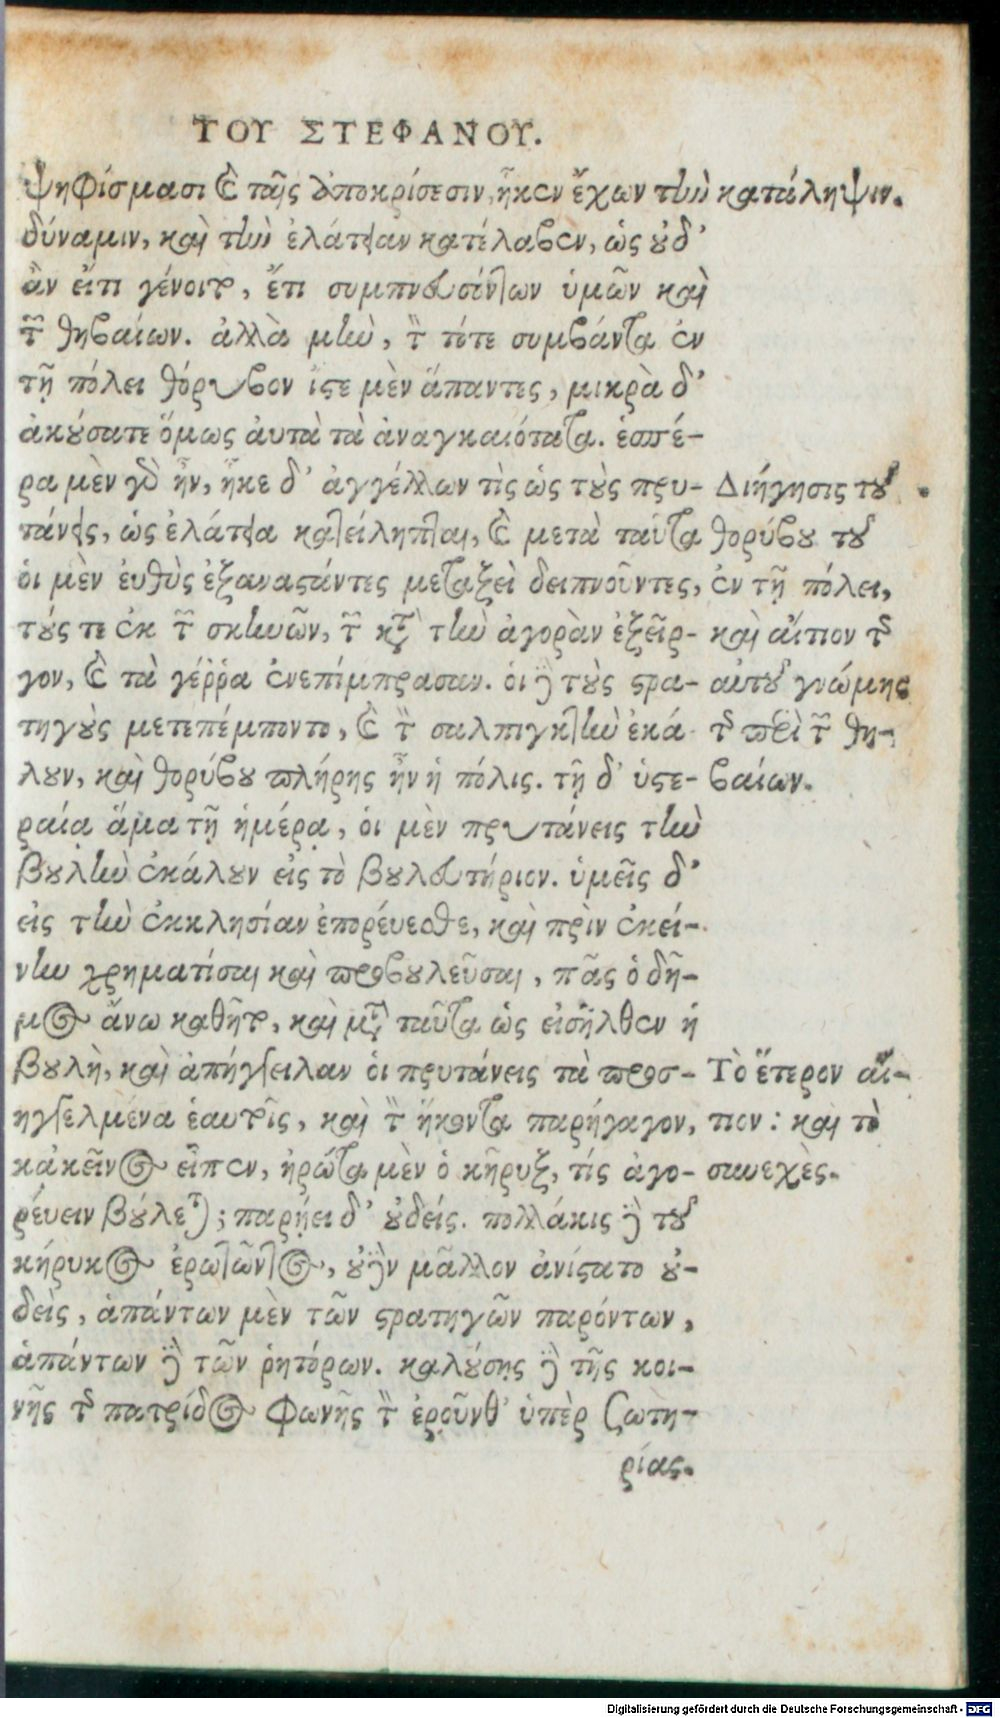 ΤΟΥ ΣΤΕΦΑΝΟΥ.
ψηφίσμασι καὶ ταῖς ἀποκρίσεσιν, ἧκεν ἔχων τὴν
δύναμιν, καὶ τὴν ἐλάτειαν κατέλαβεν, ὡς οὐδ'
ἂν εἴτι γένοιτο, ἔτι συμπνευσόντων ὑμῶν καὶ
τῶν θηβαίων. ἀλλὰ μὴν, τὸν τότε συμβάντα ἐν
τῇ πόλει θόρυβον ἴστε μὲν ἅπαντες, μικρὰ δ'
ἀκούσατε ὅμως ἀυτὰ τὰ ἀναγκαιότατα. ἑσπέ-
ρα μὲν γὰρ ἦν, ἧκε δ' ἀγγέλλων τὶς ὡς τοὺς πρυ-
τάνεις, ὡς ἐλάτεια κατείληπται, καὶ μετὰ ταῦτα
οἱ μὲν ἐυθὺς ἐξαναστάντες μεταξὺ δειπνοῦντες,
τούς τε ἐκ τῶν σκηνῶν, τῶν κατὰ τὴν ἀγορὰν ἐξεῖρ-
γον, καὶ τὰ γέῤῥα ἐνεπίμπρασαν. οἱ δὲ τοὺς στρα-
τηγοὺς μετεπέμποντο, καὶ τὸν σαλπιγκτὴν ἐκά
λουν, καὶ θορύβου πλήρης ἦν ἡ πόλις. τῇ δ' ὑστε-
ραίᾳ ἅμα τῇ ἡμέρᾳ, οἱ μὲν πρυτάνεις τὴν
βουλὴν ἐκάλουν εἰς τὸ βουλευτήριον. ὑμεῖς δ'
εἰς τὴν ἐκκλησίαν ἐπορέυεσθε, καὶ πρὶν ἐκεί-
νην χρηματίσαι καὶ προβουλεῦσαι, πᾶς ὁ δῆ-
μος ἄνω καθῆτο, καὶ μετὰ ταῦτα ὡς εἰσῆλθεν ἡ
βουλὴ, καὶ ἀπήγγειλαν οἱ πρυτάνεις τὰ προσ-
ηγγελμένα ἑαυτοῖς, καὶ τὸν ἥκοντα παρήγαγον,
κἀκεῖνος εἶπεν, ἠρώτα μὲν ὁ κῆρυξ, τίς ἀγο-
ρέυειν βούλεται; παρῄει δ' οὐδείς. πολλάκις δὲ τοῦ
κήρυκος ἐρωτῶντος, οὐδὲν μᾶλλον ἀνίστατο οὐ-
δεὶς, ἁπάντων μὲν τῶν στρατηγῶν παρόντων,
ἁπάντων δὲ τῶν ῥητόρων. καλούσης δὲ τῆς κοι-
νῆς τῆς πατρίδος φωνῆς τὸν ἐροῦνθ' ὑπὲρ σωτη-
ρίας.
κατάληψιν.
Διήγησις τοῦ
θορύβου τοῦ
ἐν τῇ πόλει,
καὶ αἴτιον τῆς
αὐτοῦ γνώμης
τῆς περὶ τῶν θη-
βαίων.
Τὸ ἕτερον αἴ-
τιον: καὶ τὸ
συνεχὲς.
Digitalisierung gefördert durch die Deutsche Forschungsgemeinschaft - DFG